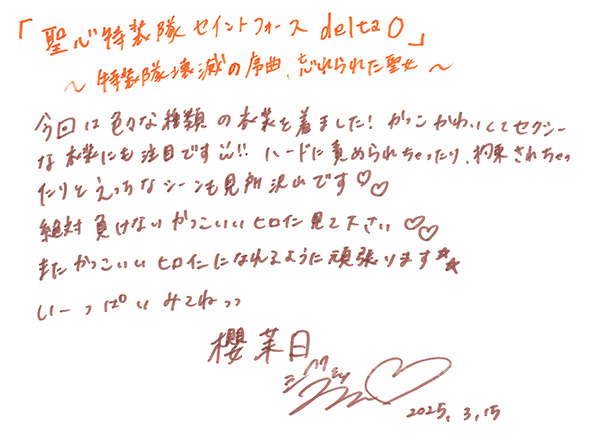 「聖心特装隊セイントフォース delta0」
～特装隊壊滅の序曲、忘れられた聖女～
今回は色々な種類の衣装を着ました！かっこかわいくてセクシー
な衣装にも注目です!!! ハードに責められちゃったり、拘束されちゃっ
たりとえっちなシーンも見所沢山です♡♡
絶対負けないかっこいいヒロイン見て下さい♡♡
またかっこいいヒロインになれるように頑張ります☆☆
いーっぱいみてねっっ
櫻茉日
2025. 3. 15